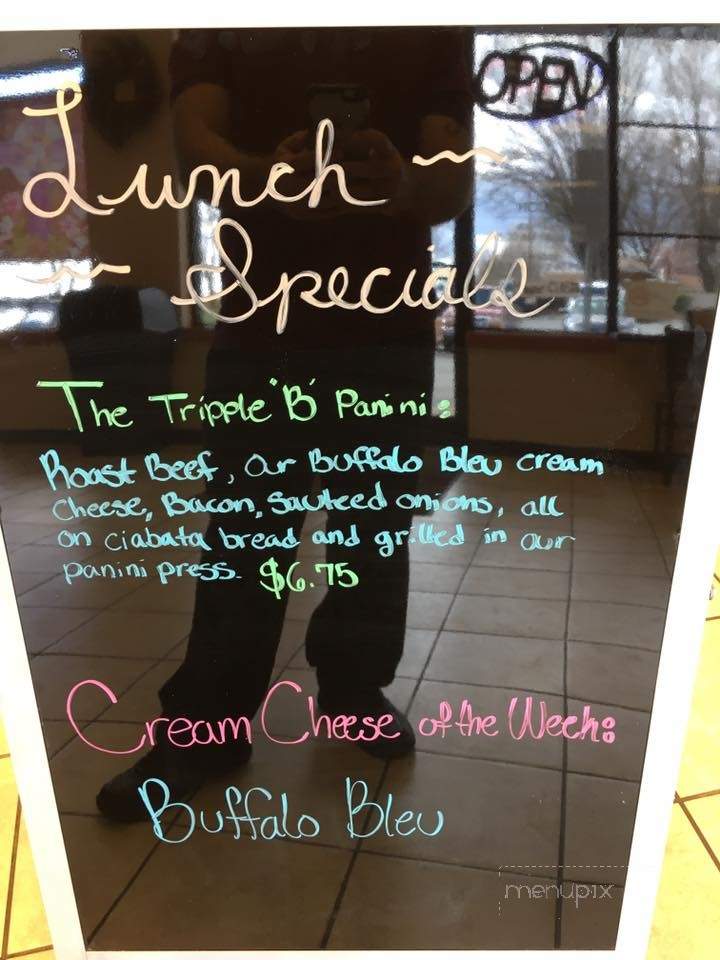 OPEN
Lunch ~
~ Specials
The Tripple "B" Panini:
Roast Beef, Our Buffalo Bleu cream
Cheese, Bacon, Sauteed onions, all
on ciabata bread and grilled in our
panini press. $6.75
Cream Cheese of the Week:
Buffalo Bleu
menupix